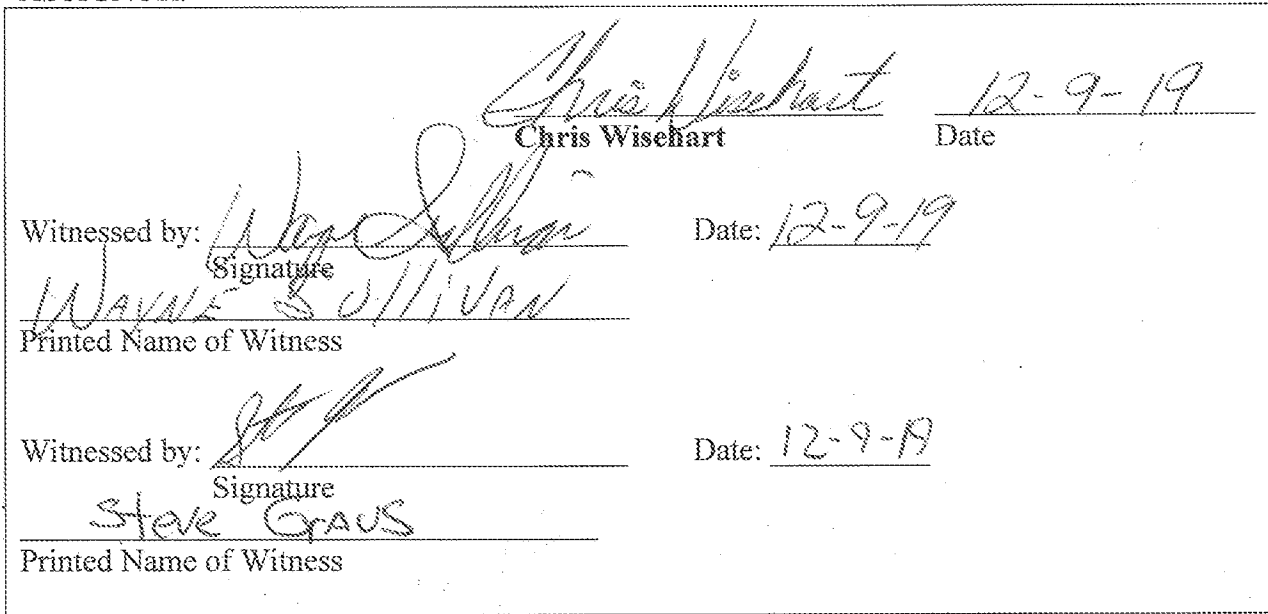 Chris Wisehart 12-9-19
Chris Wisehart Date
Witnessed by: Wayne Sullivan Date: 12-9-19
Signature
WAYNE SULLIVAN
Printed Name of Witness
Witnessed by: Date: 12-9-19
Signature
Steve GrAUS
Printed Name of Witness